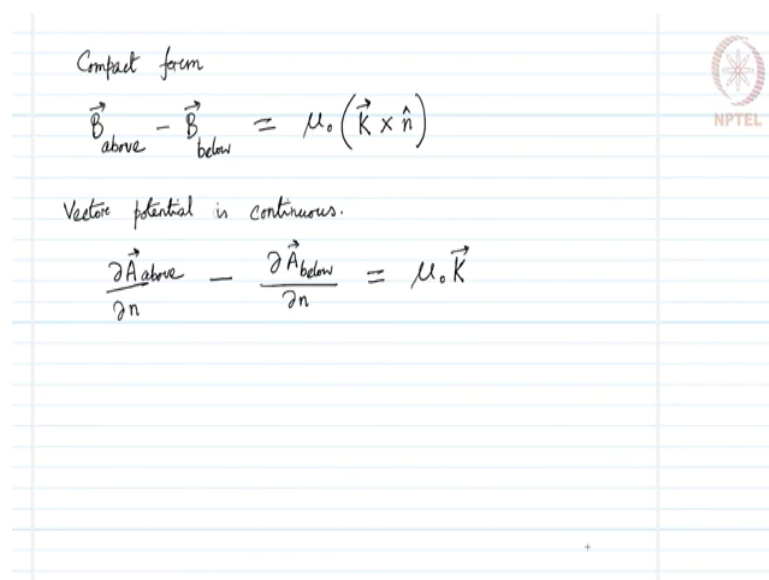 Compact form
NPTEL
B⃗_above − B⃗_below = μ₀(K⃗ × n̂)
Vector potential is continuous.
∂A⃗_above/∂n − ∂A⃗_below/∂n = μ₀K⃗